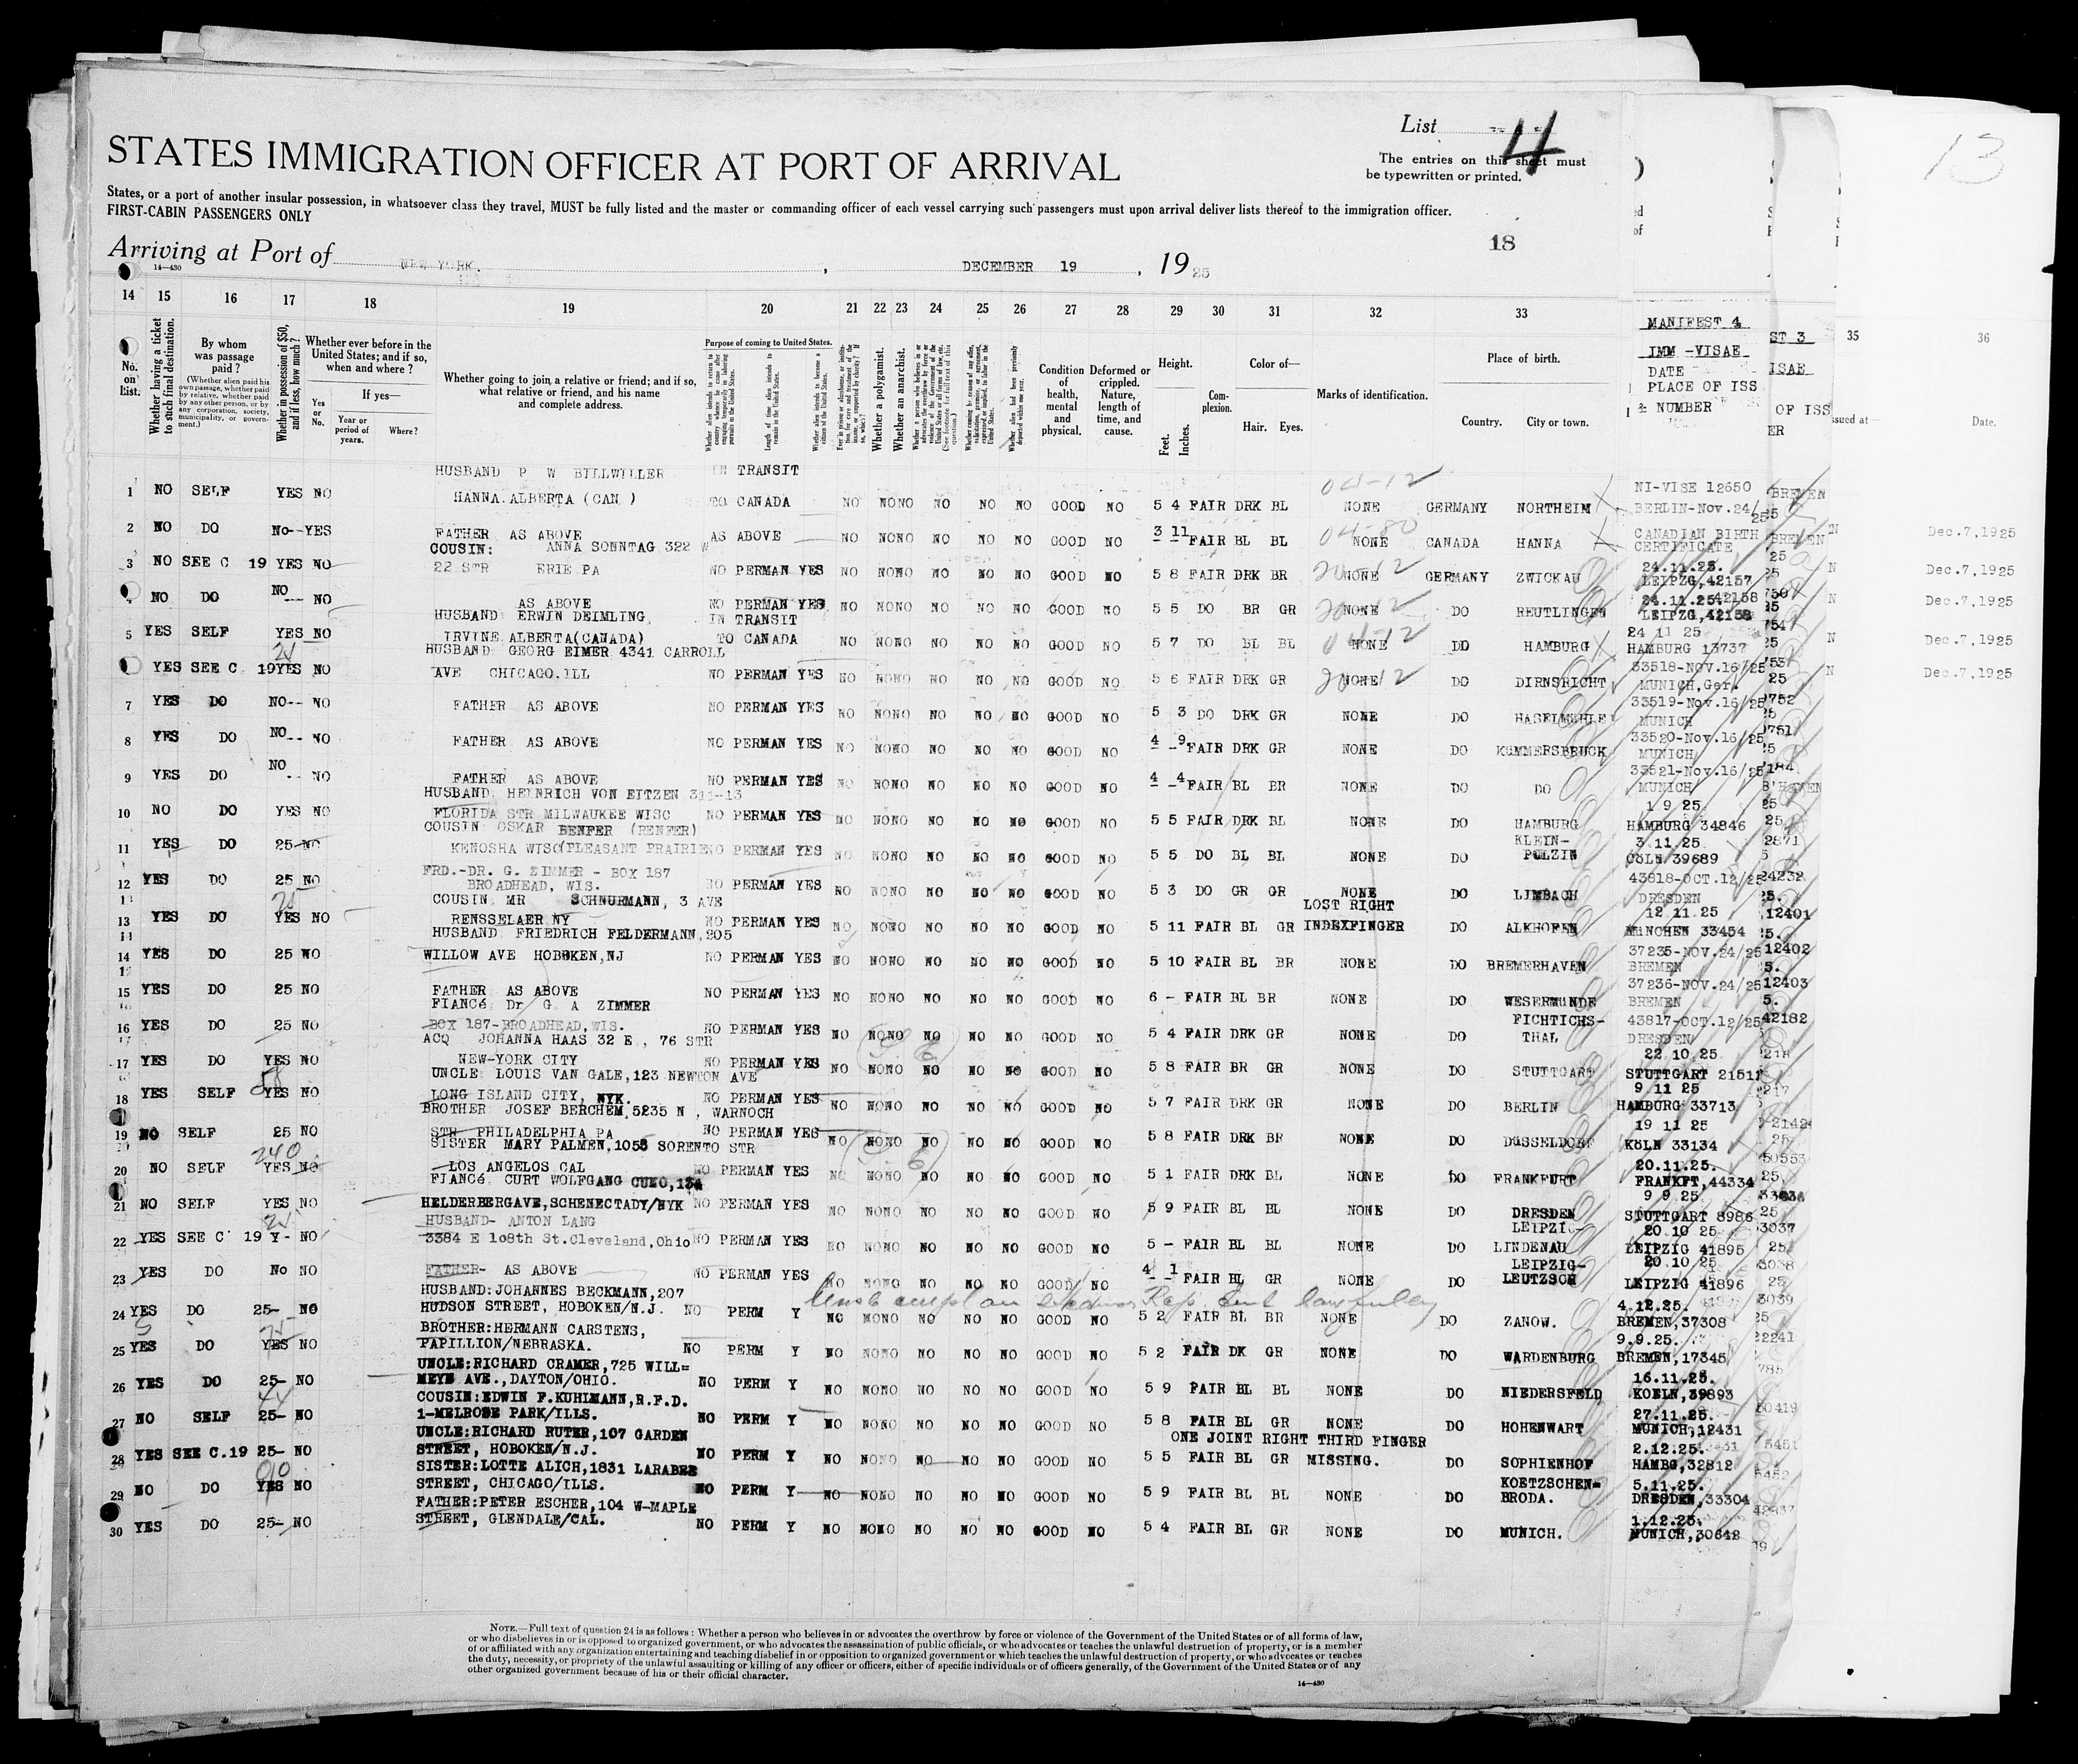 List 4
The entries on this sheet must
be typewritten or printed.
STATES IMMIGRATION OFFICER AT PORT OF ARRIVAL
States, or a port of another insular possession, in whatsoever class they travel, MUST be fully listed and the master or commanding officer of each vessel carrying such passengers must upon arrival deliver lists thereof to the immigration officer.
FIRST-CABIN PASSENGERS ONLY
13
18
Arriving at Port of NEW YORK. , DECEMBER 19 , 1925
14—430
14 15 16 17 18 19 20 21 22 23 24 25 26 27 28 29 30 31 32 33 35 36
No. on List.
Whether having a ticket to such final destination.
By whom was passage paid?
(Whether alien paid his own passage, whether paid by relative, whether paid by any other person, or by any corporation, society, municipality, or government.)
Whether in possession of $50, and if less, how much?
Whether ever before in the United States; and if so, when and where?
Yes or No.
If yes—
Year or period of years.
Where?
Whether going to join a relative or friend; and if so, what relative or friend, and his name and complete address.
Purpose of coming to United States.
Length of time alien intends to remain in the United States.
Whether a polygamist.
Whether an anarchist.
Condition of health, mental and physical.
Deformed or crippled. Nature, length of time, and cause.
Height.
Feet. Inches.
Complexion.
Color of—
Hair. Eyes.
Marks of identification.
Place of birth.
Country. City or town.
MANIFEST 4
IMM -VISAE
DATE
PLACE OF ISS
& NUMBER
ST 3
ISAE
OF ISS
ER
issued at—
Date.
HUSBAND P W BILLWILLER IN TRANSIT
1 NO SELF YES NO HANNA.ALBERTA (CAN ) TO CANADA NO NONO NO NO NO GOOD NO 5 4 FAIR DRK BL NONE GERMANY NORTHEIM NI-VISE 12650 BERLIN-Nov.24/25
04-12
2 NO DO No--YES FATHER AS ABOVE AS ABOVE NO NONO NO NO NO GOOD NO 3 11 FAIR BL BL NONE CANADA HANNA CANADIAN BIRTH CERTIFICATE
04-80
Dec.7,1925
COUSIN: ANNA SONNTAG 322 W
3 NO SEE C 19 YES NO 22 STR ERIE PA NO PERMAN YES NO NONO NO NO NO GOOD NO 5 8 FAIR DRK BR NONE GERMANY ZWICKAU 24.11.25. LEIPZG,42157
20-12
Dec.7,1925
NO DO NO NO AS ABOVE NO PERMAN YES NO NONO NO NO NO GOOD NO 5 5 DO BR GR NONE DO REUTLINGEN 24.11.25. LEIPZG,42158
20-12
Dec.7,1925
HUSBAND ERWIN DEIMLING, IN TRANSIT
5 YES SELF YES NO IRVINE.ALBERTA(CANADA) TO CANADA NO NONO NO NO NO GOOD NO 5 7 DO BL BL NONE DO HAMBURG 24 11 25 HAMBURG 13737
04-12
Dec.7,1925
HUSBAND GEORG EIMER 4341 CARROLL
YES SEE C. 19 YES NO AVE CHICAGO.ILL NO PERMAN YES NO NONO NO NO NO GOOD NO 5 6 FAIR DRK GR NONE DO DIRNSRICHT 33518-Nov.16/25 MUNICH,Ger.
20-12
Dec.7,1925
7 YES DO NO-- NO FATHER AS ABOVE NO PERMAN YES NO NONO NO NO NO GOOD NO 5 3 DO DRK GR NONE DO HASELMÜHLE 33519-Nov.16/25 MUNICH
8 YES DO NO-- NO FATHER AS ABOVE NO PERMAN YES NO NONO NO NO NO GOOD NO 4 9 FAIR DRK GR NONE DO KÜMMERSBRUCK 33520-Nov.16/25 MUNICH
9 YES DO NO -- NO FATHER AS ABOVE NO PERMAN YES NO NONO NO NO NO GOOD NO 4 4 FAIR BL BR NONE DO DO 33521-Nov.16/25 MUNICH
HUSBAND HEINRICH VON EITZEN 311-13
10 NO DO YES NO FLORIDA STR MILWAUKEE WISC NO PERMAN YES NO NONO NO NO NO GOOD NO 5 5 FAIR DRK BL NONE DO HAMBURG 1 9 25 HAMBURG 34846
COUSIN OSKAR BENFER (RENFER)
11 YES DO 25-NO KENOSHA WISC(PLEASANT PRAIRIE NO PERMAN YES NO NONO NO NO NO GOOD NO 5 5 DO BL BL NONE DO KLEIN-POLZIN 3.11.25. CÖLN 39689
FRD.-DR. G. ZIMMER - BOX 187
12 YES DO 25 NO BROADHEAD, WIS. NO PERMAN YES NO NONO NO NO NO GOOD NO 5 3 DO GR GR NONE DO LIMBACH 43818-OCT.12/25 DRESDEN
COUSIN MR SCHNURMANN, 3 AVE
LOST RIGHT
13 YES DO YES NO RENSSELAER NY NO PERMAN YES NO NONO NO NO NO GOOD NO 5 11 FAIR BL GR INDEXFINGER DO ALKHOFEN 12 11.25 MÜNCHEN 33454
HUSBAND FRIEDRICH FELDERMANN,205
14 YES DO 25 NO WILLOW AVE HOBOKEN,NJ NO PERMAN YES NO NONO NO NO NO GOOD NO 5 10 FAIR BL BR NONE DO BREMERHAVEN 37235-NOV.24/25 BREMEN
15 YES DO 25 NO FATHER AS ABOVE NO PERMAN YES NO NONO NO NO NO GOOD NO 6 - FAIR BL BR NONE DO WESERMÜNDE 37236-NOV.24/25 BREMEN
FIANCé Dr G. A ZIMMER
16 YES DO 25 NO BOX 187-BROADHEAD,WIS. NO PERMAN YES NO NONO NO NO NO GOOD NO 5 4 FAIR DRK GR NONE DO FICHTICHS-THAL 43817-OCT.12/25 DRESDEN
ACQ JOHANNA HAAS 32 E , 76 STR
17 YES DO YES NO NEW-YORK CITY NO PERMAN YES NO NONO NO NO NO GOOD NO 5 8 FAIR BR GR NONE DO STUTTGART 22 10 25 STUTTGART 21511
UNCLE LOUIS VAN GALE,123 NEWTON AVE
18 YES SELF YES NO LONG ISLAND CITY, NYK. NO PERMAN YES NO NONO NO NO NO GOOD NO 5 7 FAIR DRK GR NONE DO BERLIN 9 11 25 HAMBURG 33713
BROTHER JOSEF BERCHEM,5235 N , WARNOCH
19 NO SELF 25 NO STR PHILADELPHIA PA NO PERMAN YES NO NONO NO NO NO GOOD NO 5 8 FAIR DRK BR NONE DO DÜSSELDORF 19 11 25 KÖLN 33134
SISTER MARY PALMEN,1055 SORENTO STR
240
20 NO SELF YES NO LOS ANGELOS CAL NO PERMAN YES NO NONO NO NO NO GOOD NO 5 1 FAIR DRK BL NONE DO FRANKFURT 20.11.25. FRANKFT,44334
FIANCé CURT WOLFGANG CUEO,134
21 NO SELF YES NO HELDERBERGAVE,SCHENECTADY/NYK NO PERMAN YES NO NONO NO NO NO GOOD NO 5 9 FAIR BL BL NONE DO DRESDEN 9 9 25 STUTTGART 8986
HUSBAND- ANTON LANG
22 YES SEE C 19 Y- NO 3384 E 108th St.Cleveland,Ohio NO PERMAN YES NO NONO NO NO NO GOOD NO 5 - FAIR BL BL NONE DO LEIPZIG-LINDENAU 20 10 25 LEIPZIG 41895
23 YES DO No NO FATHER- AS ABOVE NO PERMAN YES NO NONO NO NO NO GOOD NO 4 1 FAIR BL GR NONE DO LEIPZIG-LEUTZSCH 20.10 25 LEIPZIG 41896
HUSBAND:JOHANNES BECKMANN,207
24 YES DO 25- NO HUDSON STREET, HOBOKEN/N.J. NO PERM Y NO NONO NO NO NO GOOD NO 5 2 FAIR BL BR NONE DO ZANOW. 4.12.25. BREMEN,37308
BROTHER:HERMANN CARSTENS,
25 YES DO YES NO PAPILLION/NEBRASKA. NO PERM Y NO NONO NO NO NO GOOD NO 5 2 FAIR DK GR NONE DO WARDENBURG 9.9.25. BREMEN,17345
UNCLE:RICHARD CRAMER,725 WILL=
26 YES DO 25- NO MEYE AVE.,DAYTON/OHIO. NO PERM Y NO NONO NO NO NO GOOD NO 5 9 FAIR BL BL NONE DO NIEDERSFELD 16.11.25. KOELN,39893
COUSIN:EDWIN F.KUHLMANN,R.F.D.
27 NO SELF 25- NO 1-MELROSE PARK/ILLS. NO PERM Y NO NONO NO NO NO GOOD NO 5 8 FAIR BL GR NONE DO HOHENWART 27.11.25. MUNICH,12431
UNCLE:RICHARD RUTER,107 GARDEN
ONE JOINT RIGHT THIRD FINGER
28 YES SEE C.19 25- NO STREET, HOBOKEN/N.J. NO PERM Y NO NONO NO NO NO GOOD NO 5 5 FAIR BL GR MISSING. DO SOPHIENHOF 2.12.25. HAMBG,32812
SISTER:LOTTE ALICH,1831 LARABEE
29 NO DO YES NO STREET, CHICAGO/ILLS. NO PERM Y NO NONO NO NO NO GOOD NO 5 9 FAIR BL BL NONE DO KOETZSCHEN=BRODA. 5.11.25. DRESDEN,33304
FATHER:PETER ESCHER,104 W-MAPLE
30 YES DO 25- NO STREET, GLENDALE/CAL. NO PERM Y NO NONO NO NO NO GOOD NO 5 4 FAIR BL GR NONE DO MUNICH. 1.12.25. MUNICH,30642
NOTE.—Full text of question 24 is as follows: Whether a person who believes in or advocates the overthrow by force or violence of the Government of the United States or of all forms of law,
or who disbelieves in or is opposed to organized government, or who advocates the assassination of public officials, or who advocates or teaches the unlawful destruction of property, or is a member
of or affiliated with any organization entertaining and teaching disbelief in or opposition to organized government or which teaches the unlawful destruction of property, or who advocates or teaches
the duty, necessity, or propriety of the unlawful assaulting or killing of any officer or officers, either of specific individuals or of officers generally, of the Government of the United States or of any
other organized government because of his or their official character.
14—430